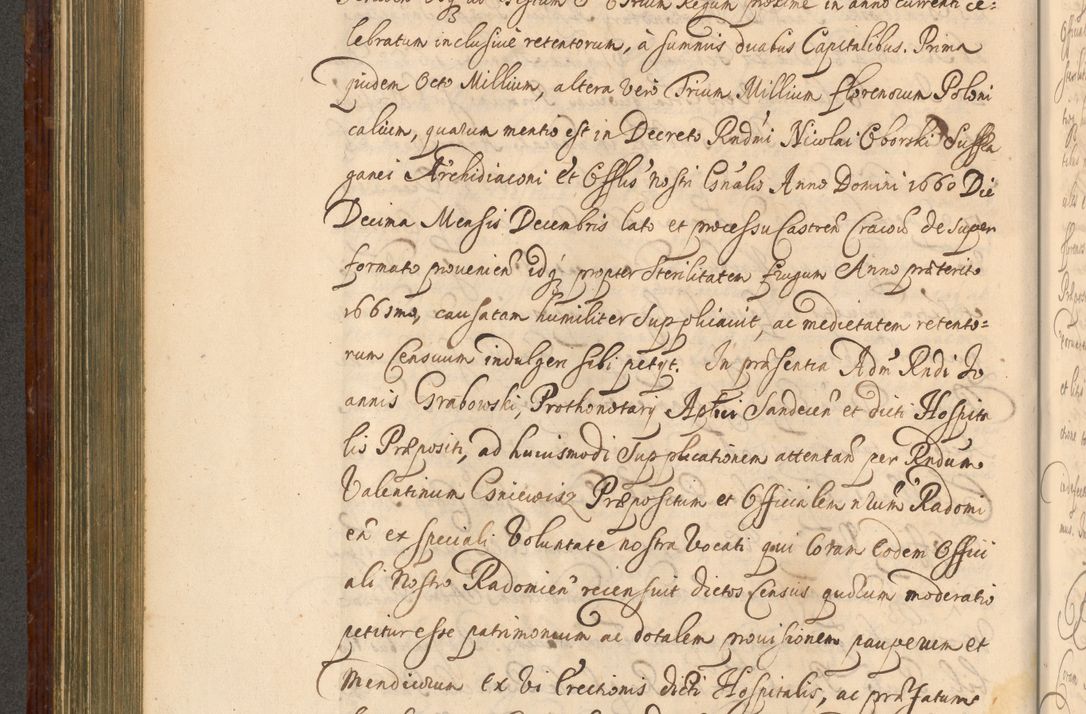 lebratum inclusivè retentorum, à summis duabus Capitalibus. Prima
quidem Octo Millium, altera verò Trium Millium florenorum Poloni
calium, quarum mentio est in Decreto Rndmi Nicolai Oborski Suffra
ganei Archidiaconi et Offlis nostri Gnalis Anno Domini 1660 Die
Decima Mensis Decembris lato et processu Castren Cracov de super
formato provenien idq propter sterilitatem frugum Anno præterito
1661mo, causatam humiliter supplicavit, ac medietatem retento=
rum Censuum indulgeri sibi petyt. In præsentia Adm Rndi Jo
annis Grabowski, Prothonotarij Aplici Sandecen et dicti Hospita
lis Præpositi, ad huiusmodi supplicationem attentan per Rndum
Valentinum Gniewisz Præpositum et Officialem nrum Radomi
en ex speciali voluntate nostra vocati qui coram eodem Offici
ali nostro Radomien recensuit dictos census quorum moderatio
petitur esse patrimonium ac dotalem provisionem pauperum et
Mendicorum ex vi Erectionis dicti Hospitalis, ac præfatum